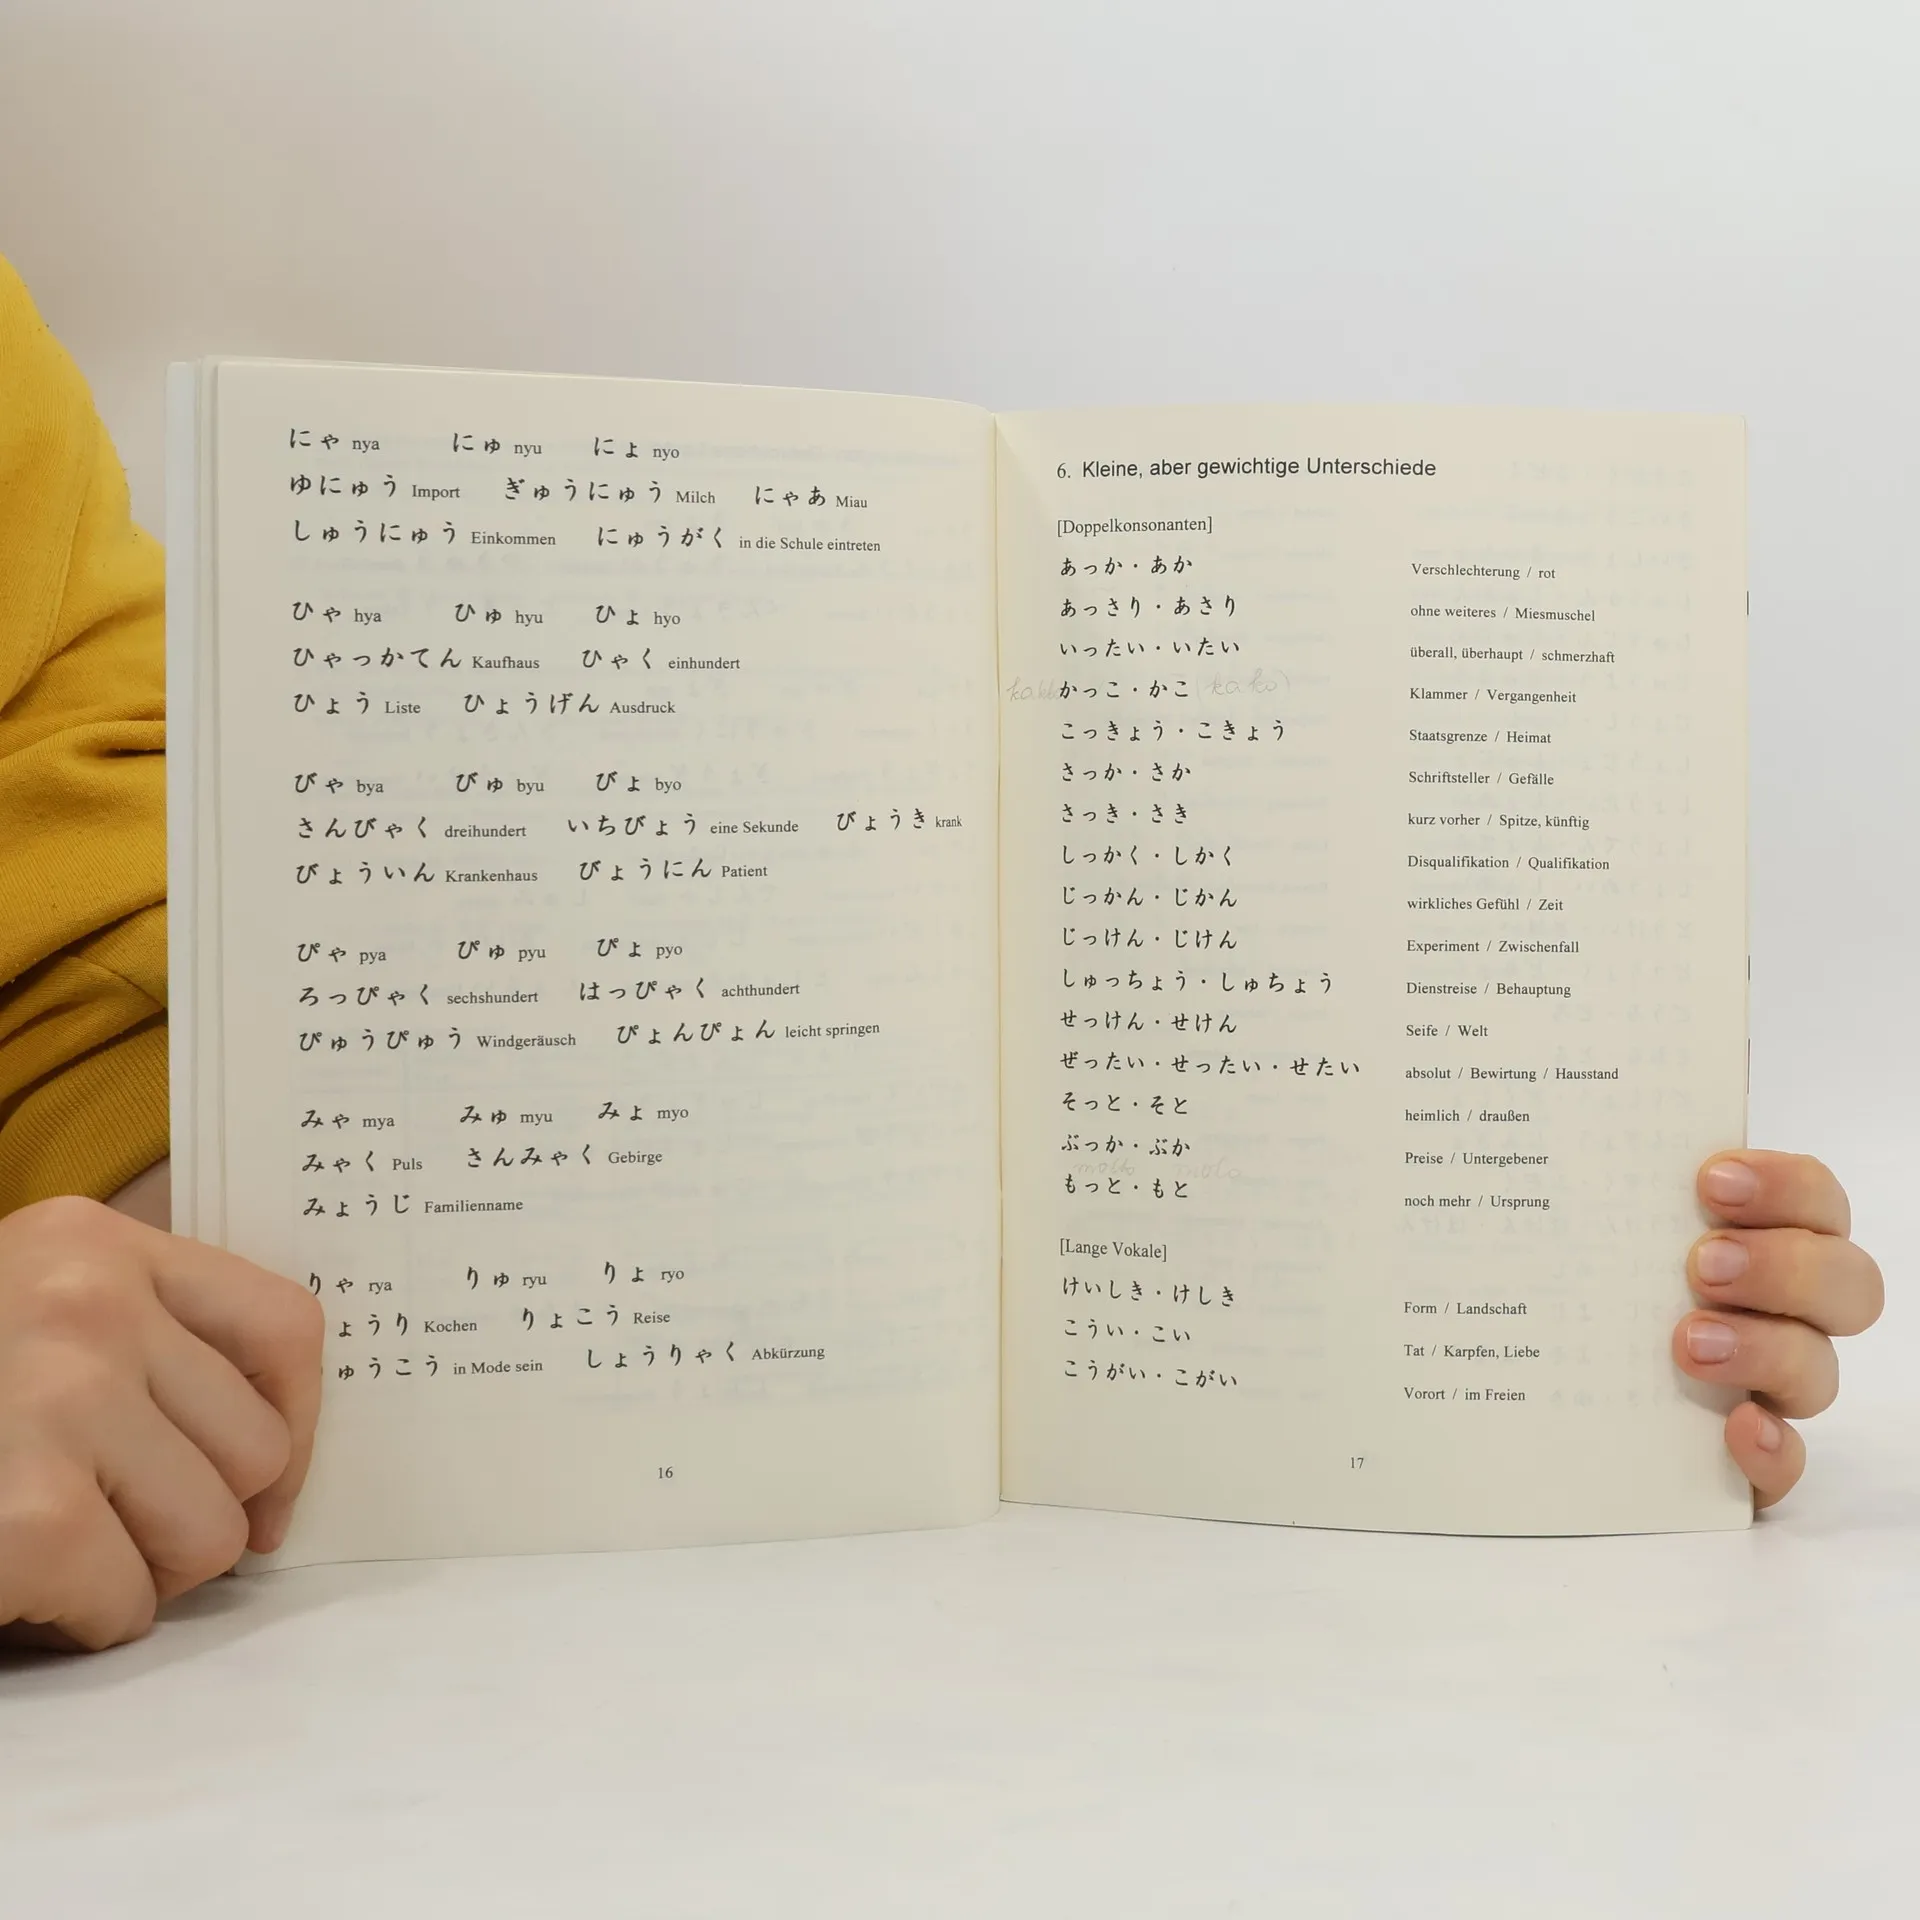 にゃ nya にゅ nyu にょ nyo
ゆにゅう Import ぎゅうにゅう Milch にゃあ Miau
しゅうにゅう Einkommen にゅうがく in die Schule eintreten
ひゃ hya ひゅ hyu ひょ hyo
ひゃっかてん Kaufhaus ひゃく einhundert
ひょう Liste ひょうげん Ausdruck
びゃ bya びゅ byu びょ byo
さんびゃく dreihundert いちびょう eine Sekunde びょうき krank
びょういん Krankenhaus びょうにん Patient
ぴゃ pya ぴゅ pyu ぴょ pyo
ろっぴゃく sechshundert はっぴゃく achthundert
ぴゅうぴゅう Windgeräusch ぴょんぴょん leicht springen
みゃ mya みゅ myu みょ myo
みゃく Puls さんみゃく Gebirge
みょうじ Familienname
りゃ rya りゅ ryu りょ ryo
ょうり Kochen りょこう Reise
ゅうこう in Mode sein しょうりゃく Abkürzung
16
6. Kleine, aber gewichtige Unterschiede
[Doppelkonsonanten]
あっか・あか Verschlechterung / rot
あっさり・あさり ohne weiteres / Miesmuschel
いったい・いたい überall, überhaupt / schmerzhaft
かっこ・かこ (kako) Klammer / Vergangenheit
こっきょう・こきょう Staatsgrenze / Heimat
さっか・さか Schriftsteller / Gefälle
さっき・さき kurz vorher / Spitze, künftig
しっかく・しかく Disqualifikation / Qualifikation
じっかん・じかん wirkliches Gefühl / Zeit
じっけん・じけん Experiment / Zwischenfall
しゅっちょう・しゅちょう Dienstreise / Behauptung
せっけん・せけん Seife / Welt
ぜったい・せったい・せたい absolut / Bewirtung / Hausstand
そっと・そと heimlich / draußen
ぶっか・ぶか Preise / Untergebener
もっと・もと noch mehr / Ursprung
[Lange Vokale]
けいしき・けしき Form / Landschaft
こうい・こい Tat / Karpfen, Liebe
こうがい・こがい Vorort / im Freien
17